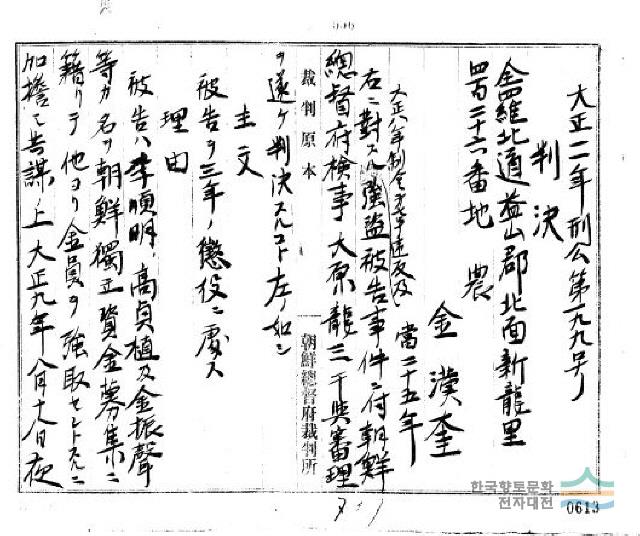 大正一一年刑公第一九九号ノ
判決
全羅北道益山郡北面新龍里
四百二十六番地 農
金漢奎
當二十五年
大正八年制令第七号違反及
右ニ對スル強盗被告事件ニ付朝鮮
總督府検事大原龍三干與審理
ヲ遂ケ判決スルコト左ノ如シ
裁判原本
朝鮮總督府裁判所
主文
被告ヲ三年ノ懲役ニ處ス
理由
被告ハ李順明、高貞植及金振聲
等カ名ヲ朝鮮獨立資金募集ニ
籍リテ他ヨリ金員ヲ強取セントスルニ
加擔シ共謀ノ上大正九年八月十八日夜
한국향토문화
전자대전
0613